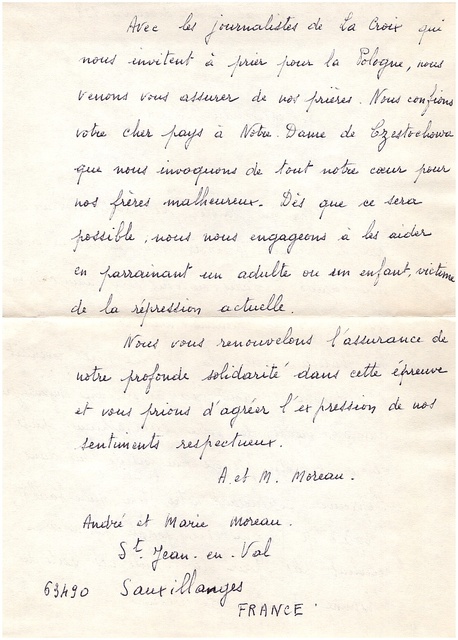 Avec les journalistes de La Croix qui
nous invitent à prier pour la Pologne, nous
venons vous assurer de nos prières. Nous confions
votre cher pays à Notre-Dame de Czestochowa
que nous invoquons de tout notre cœur pour
nos frères malheureux. Dès que ce sera
possible, nous nous engageons à les aider
en parrainant un adulte ou un enfant, victime
de la répression actuelle.
Nous vous renouvelons l'assurance de
notre profonde solidarité dans cette épreuve
et vous prions d'agréer l'expression de nos
sentiments respectueux.
A. et M. Moreau.
André et Marie Moreau.
St. Jean-en-Val
63490 Sauxillanges
FRANCE.